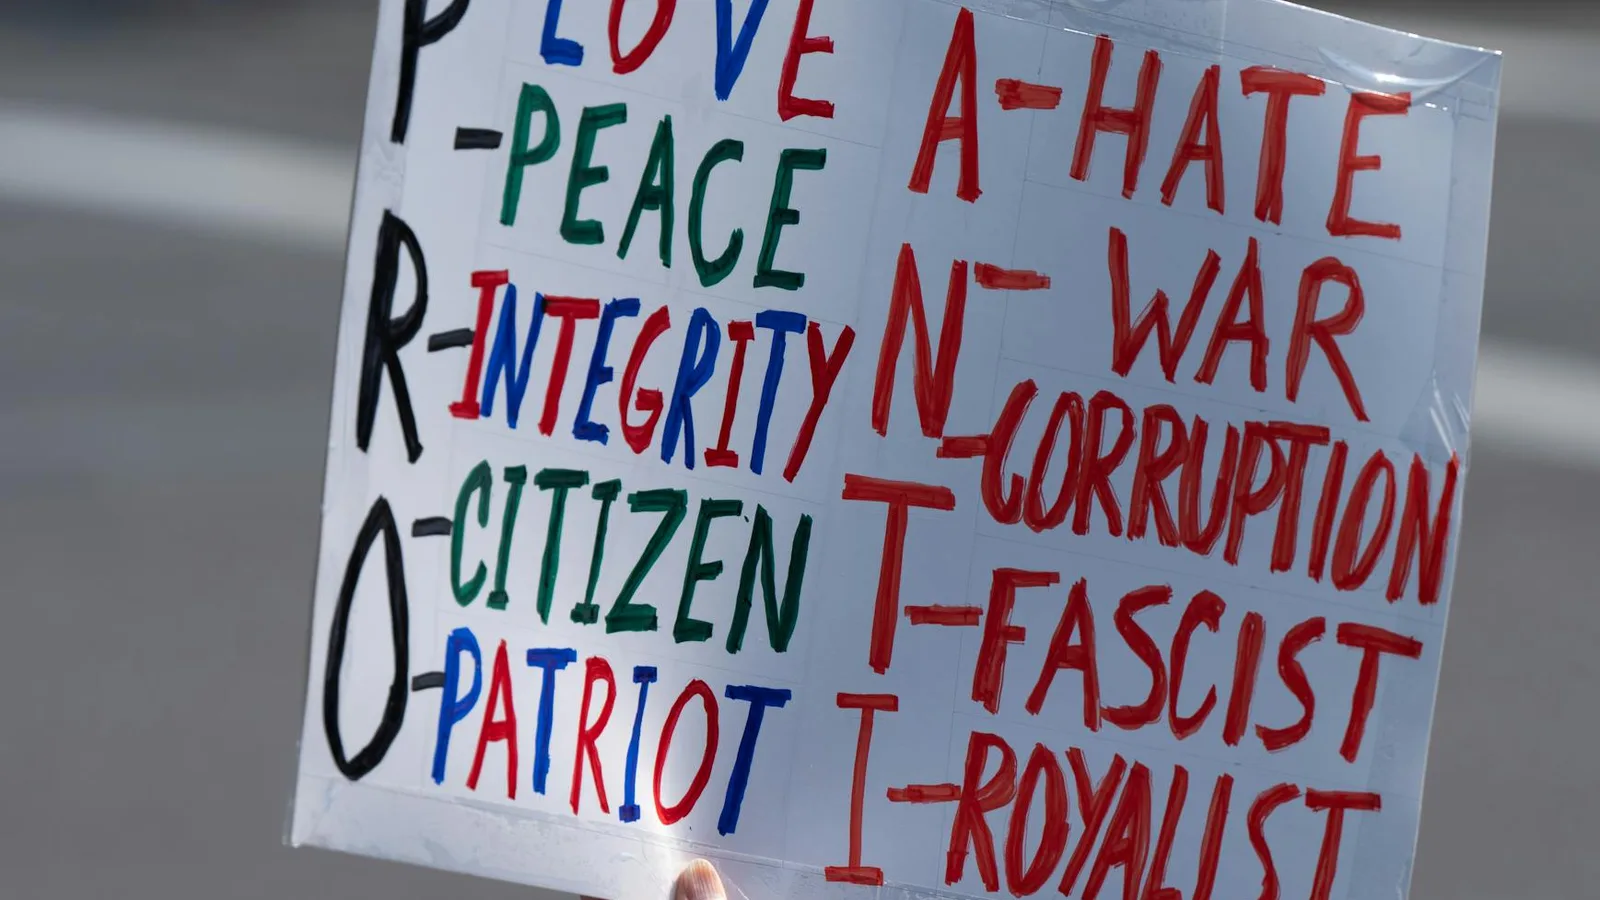 P LOVE
-PEACE
R-INTEGRITY
O-CITIZEN
-PATRIOT
A-HATE
N- WAR
-CORRUPTION
T-FASCIST
I-ROYALIST